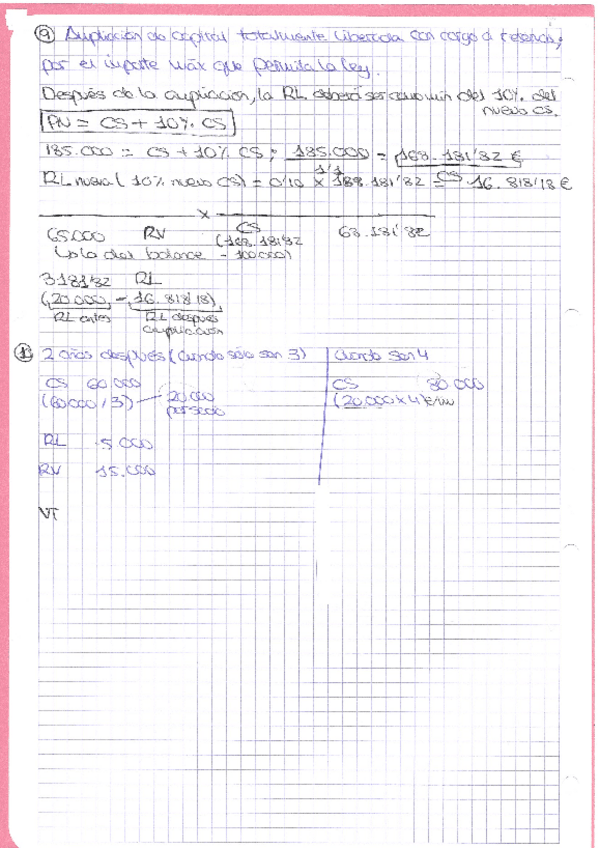 ⑨ Ampliación de capital totalmente liberada con cargo a reservas,
por el importe máx que permita la ley.
Después de la ampliación, la RL deberá ser como mín del 10% del
nuevo CS.
PN = CS + 10% CS
185.000 = CS + 10% CS ; 185.000 / 1'1 = 168.181'82 €
CS
RL nueva (10% nuevo CS) = 0'10 x 168.181'82 = 16.818'18 €
x
65.000 RV CS 68.181'82
(168.181'82
Lo del balance - 100.000)
3.181'82 RL
(20.000 - 16.818'18)
RL antes RL después
ampliación
2 años después (cuando sólo son 3) Cuando son 4
CS 60.000 CS 80.000
(60.000 / 3) 20.000 (20.000 x 4)
por socio
RL 5.000
RV 15.000
VT